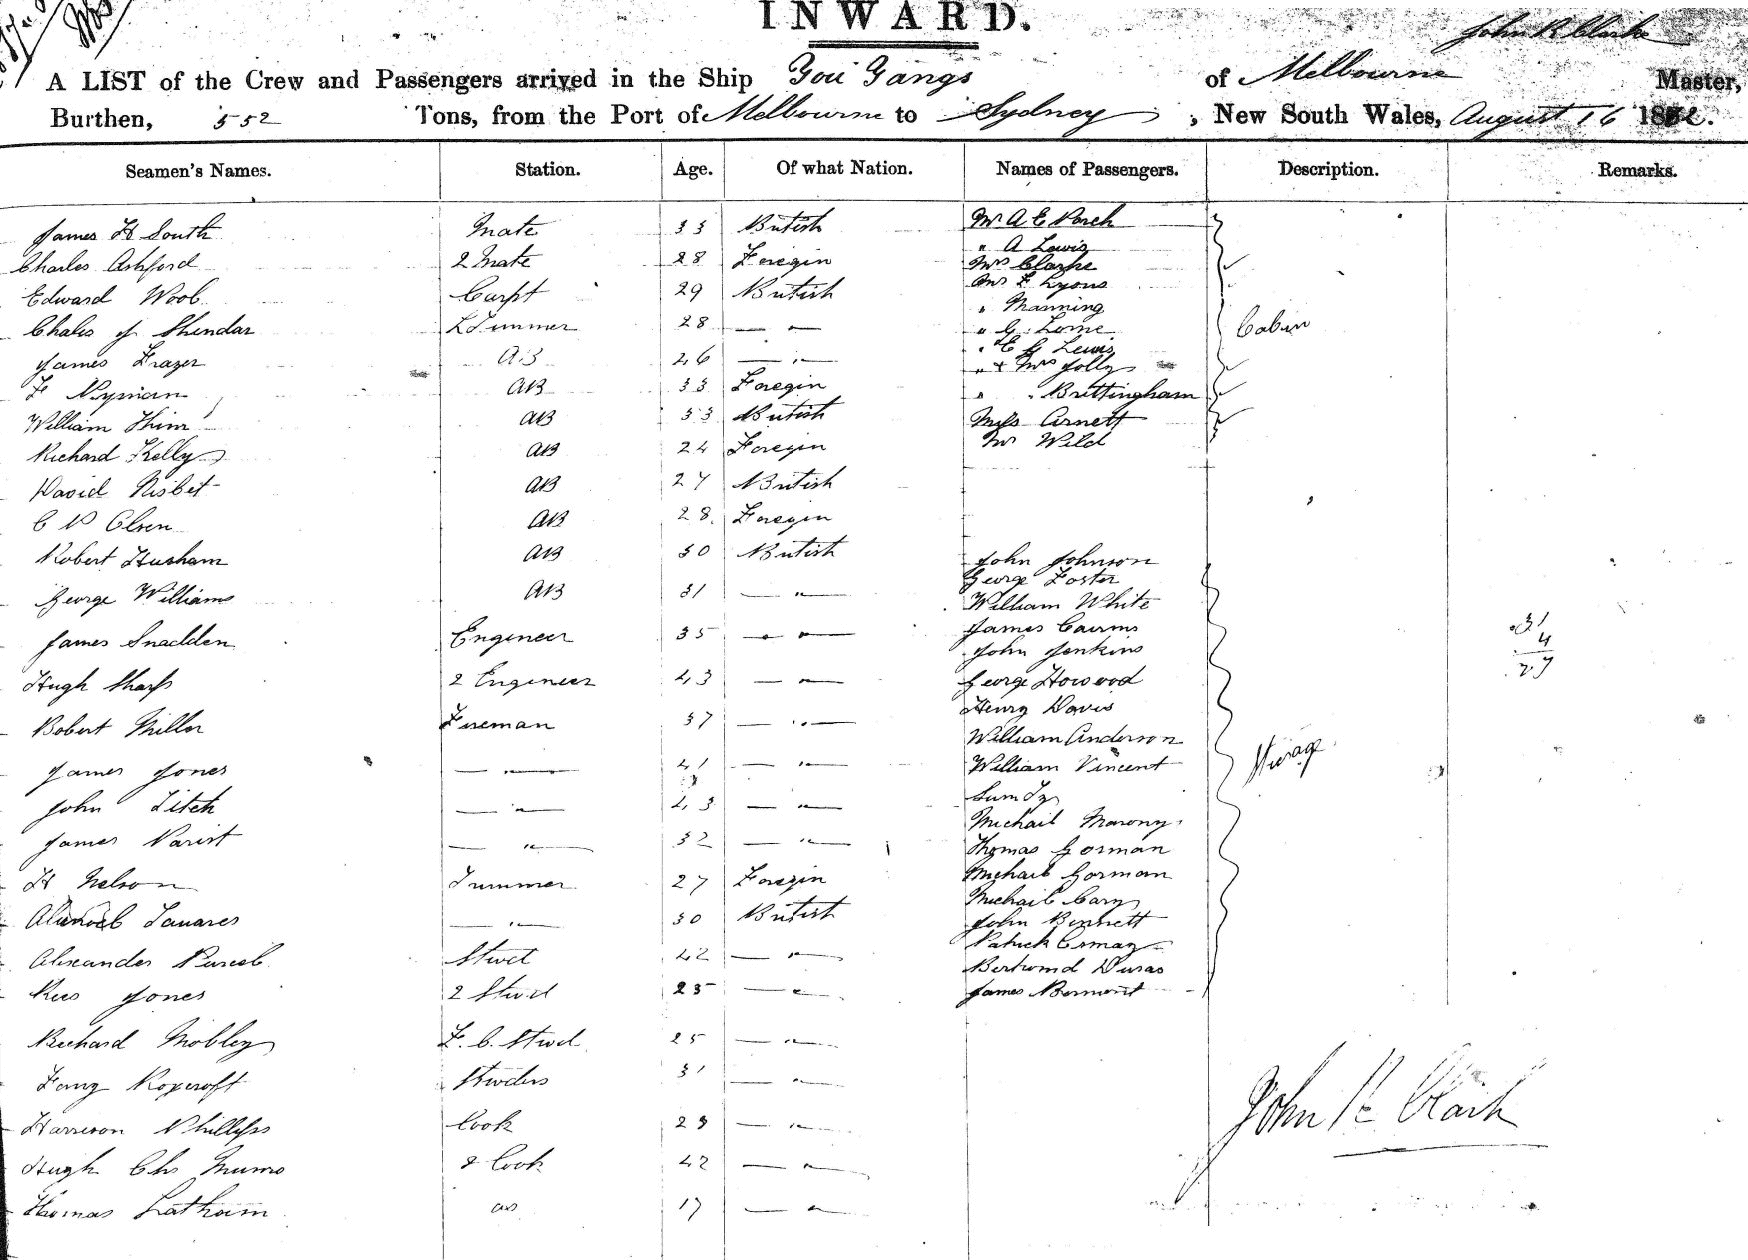 INWARD.
John R Clarke
A LIST of the Crew and Passengers arrived in the Ship You Yangs of Melbourne Master,
Burthen, 552 Tons, from the Port of Melbourne to Sydney, New South Wales, August 16 18
Seamen's Names. Station. Age. Of what Nation. Names of Passengers. Description. Remarks.
James H South Mate 33 British Mr A E Porch
" A Lewis
Charles Ashford 2 Mate 28 Foregin Mrs Clarke
Mr F Lyons
Edward Woob Carpt 29 British " Manning
Chales of Shendar LTrimmer 28 — " — " G. Lome Cabin
" E G Lewis
James Frazer AB 26 — " — " & Mrs Jolly
F Nyman AB 33 Foregin " " Brettingham
William Thim AB 33 British Miss Arnett
Richard Kelly AB 24 Foregin Mr Wild
David Nisbet AB 27 British
C P Olsen AB 28 Foregin
Robert Husham AB 30 British John Johnson
George Foster
George Williams AB 31 — " — William White
James Snadden Engineer 35 — " — James Cairns
John Jenkins
31
4
27
Hugh Sharp 2 Engineer 43 — " — George Howood
Henry Davis
Robert Miller Fireman 37 — " — William Anderson
James Jones — " — 41 — " — William Vincent Sterage
John Fitch — " — 43 — " — Sum
Michail Marony
James Parist — " — 32 — " — Thomas Gorman
H Nelson Trimmer 27 Foregin Michail Gorman
Michail Cary
Tavares — " — 30 British John Bennett
Patrick
Alexander Purcel Stwd 42 — " — Bertrand Duras
Rees Jones 2 Stwd 25 — " — James
Richard Mobley F. C. Stwd 25 — " —
Roxcroft Stwdss 31 — " —
Harrison Phillips Cook 29 — " — John R Clark
Hugh Chs Munro 2 Cook 42 — " —
Thomas Latham 17 — " —